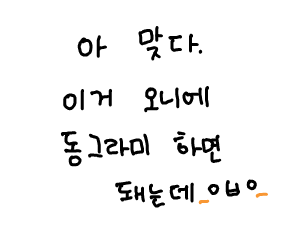 아 맞다.
이거 오니에
동그라미 하면
돼는데_ㅇㅂㅇ_